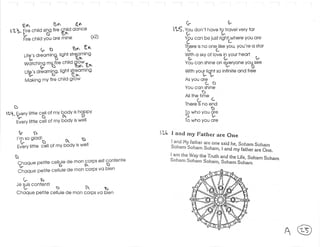 Em Bm Em
123. Fire child and fire child dance
Fire child you are mine (x2)
G D Bm Em
Life's dreaming, light streaming
Watching my fire child grow
Life's dreaming, light streaming
Making my fire child grow
D
124. Every little cell of my body is happy
Every little cell of my body is well
I'm so glad!
Every little cell of my body is well
D
Chaque petite cellule de mon corps est contente
Chaque petite cellule de mon corps va bien
Je suis content!
Chaque petite cellule de mon corps va bien
G C
125. You don't have to travel very far
You can be just right where you are
There is no one like you, you're a star
With a sky of love in your heart
You can shine on everyone you see
With your light so infinite and free
As you are
You can shine
All the time
There's no end
To who you are
To who you are
126. I and my Father are One
I and my father are one said he, Soham Soham
Soham Soham Soham, I and my father are One.
I am the Way the Truth and the Life, Soham Soham
Soham Soham Soham, Soham Soham.
A 25